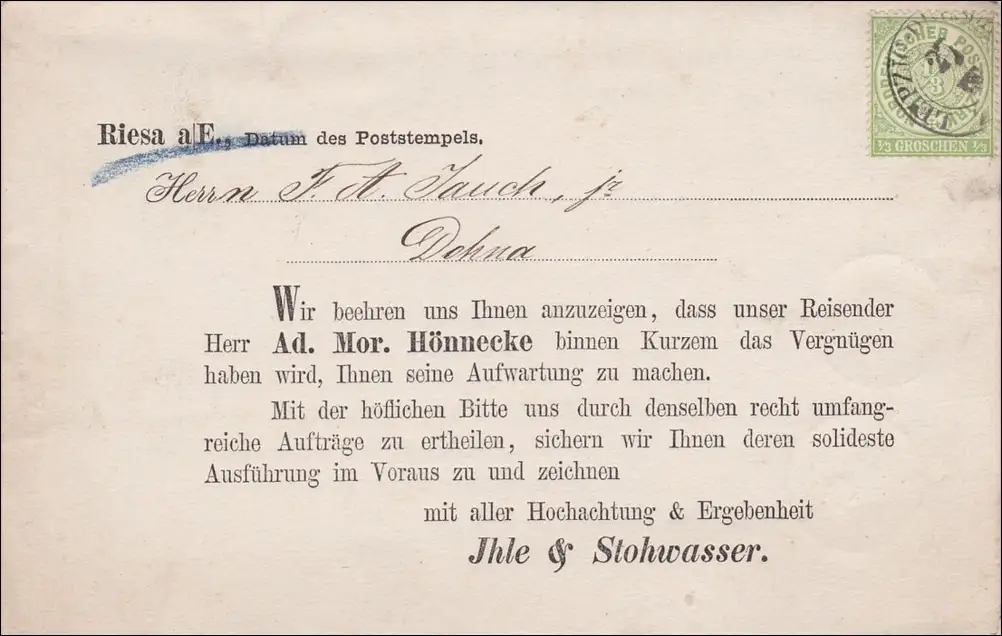 LEIPZIG
NORDDEUTSCHER POST
1/3
1/3 GROSCHEN 1/3
Riesa a/E., Datum des Poststempels.
Herrn F. A. Jauch, jr
Dohna
Wir beehren uns Ihnen anzuzeigen, dass unser Reisender
Herr Ad. Mor. Hönnecke binnen Kurzem das Vergnügen
haben wird, Ihnen seine Aufwartung zu machen.
Mit der höflichen Bitte uns durch denselben recht umfang-
reiche Aufträge zu ertheilen, sichern wir Ihnen deren solideste
Ausführung im Voraus zu und zeichnen
mit aller Hochachtung & Ergebenheit
Jhle & Stohwasser.